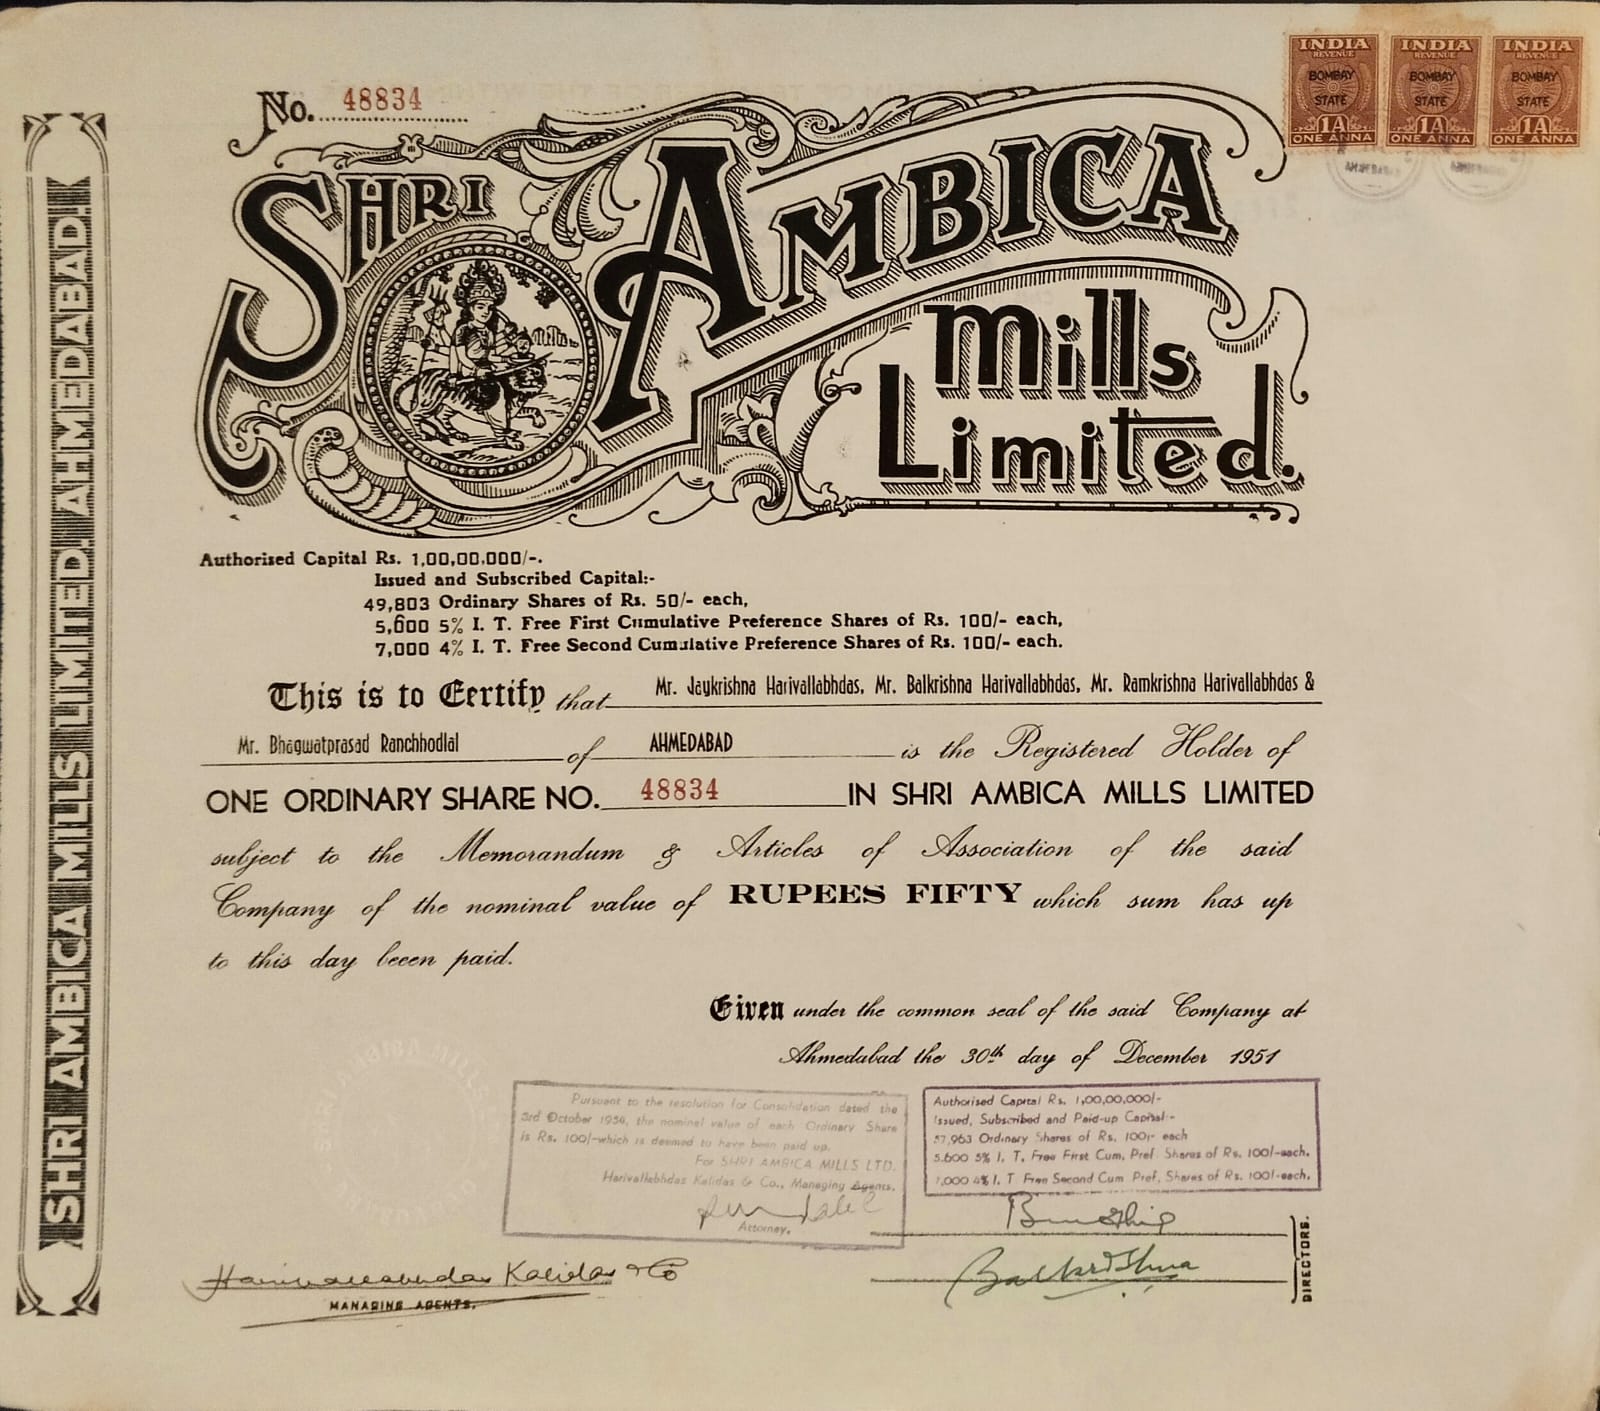 INDIA INDIA INDIA
REVENUE REVENUE REVENUE
BOMBAY BOMBAY BOMBAY
STATE STATE STATE
1A 1A 1A
ONE ANNA ONE ANNA ONE ANNA
No. 48834
SHRI AMBICA
Mills
Limited.
SHRI AMBICA MILLS LIMITED. AHMEDABAD.
Authorised Capital Rs. 1,00,00,000/-.
Issued and Subscribed Capital:-
49,803 Ordinary Shares of Rs. 50/- each,
5,600 5% I. T. Free First Cumulative Preference Shares of Rs. 100/- each,
7,000 4% I. T. Free Second Cumulative Preference Shares of Rs. 100/- each.
This is to Certify that Mr. Jaykrishna Harivallabhdas, Mr. Balkrishna Harivallabhdas, Mr. Ramkrishna Harivallabhdas &
Mr. Bhagwatprasad Ranchhodlal of AHMEDABAD is the Registered Holder of
ONE ORDINARY SHARE NO. 48834 IN SHRI AMBICA MILLS LIMITED
subject to the Memorandum & Articles of Association of the said
Company of the nominal value of RUPEES FIFTY which sum has up
to this day beeen paid.
Given under the common seal of the said Company at
Ahmedabad the 30th day of December 1951
Pursuant to the resolution for Consolidation dated the
3rd October 1956, the nominal value of each Ordinary Share
is Rs. 100/-which is deemed to have been paid up.
For SHRI AMBICA MILLS LTD.
Harivallabhdas Kalidas & Co., Managing Agents.
Attorney.
Authorised Capital Rs. 1,00,00,000/-
Issued, Subscribed and Paid-up Capital:-
57,963 Ordinary Shares of Rs. 100/- each
5,600 5% I. T. Free First Cum. Pref. Shares of Rs. 100/-each.
7,000 4% I. T Free Second Cum Pref. Shares of Rs. 100/-each.
Harivallabhdas Kalidas & Co
MANAGING AGENTS.
Balkrishna
DIRECTORS.